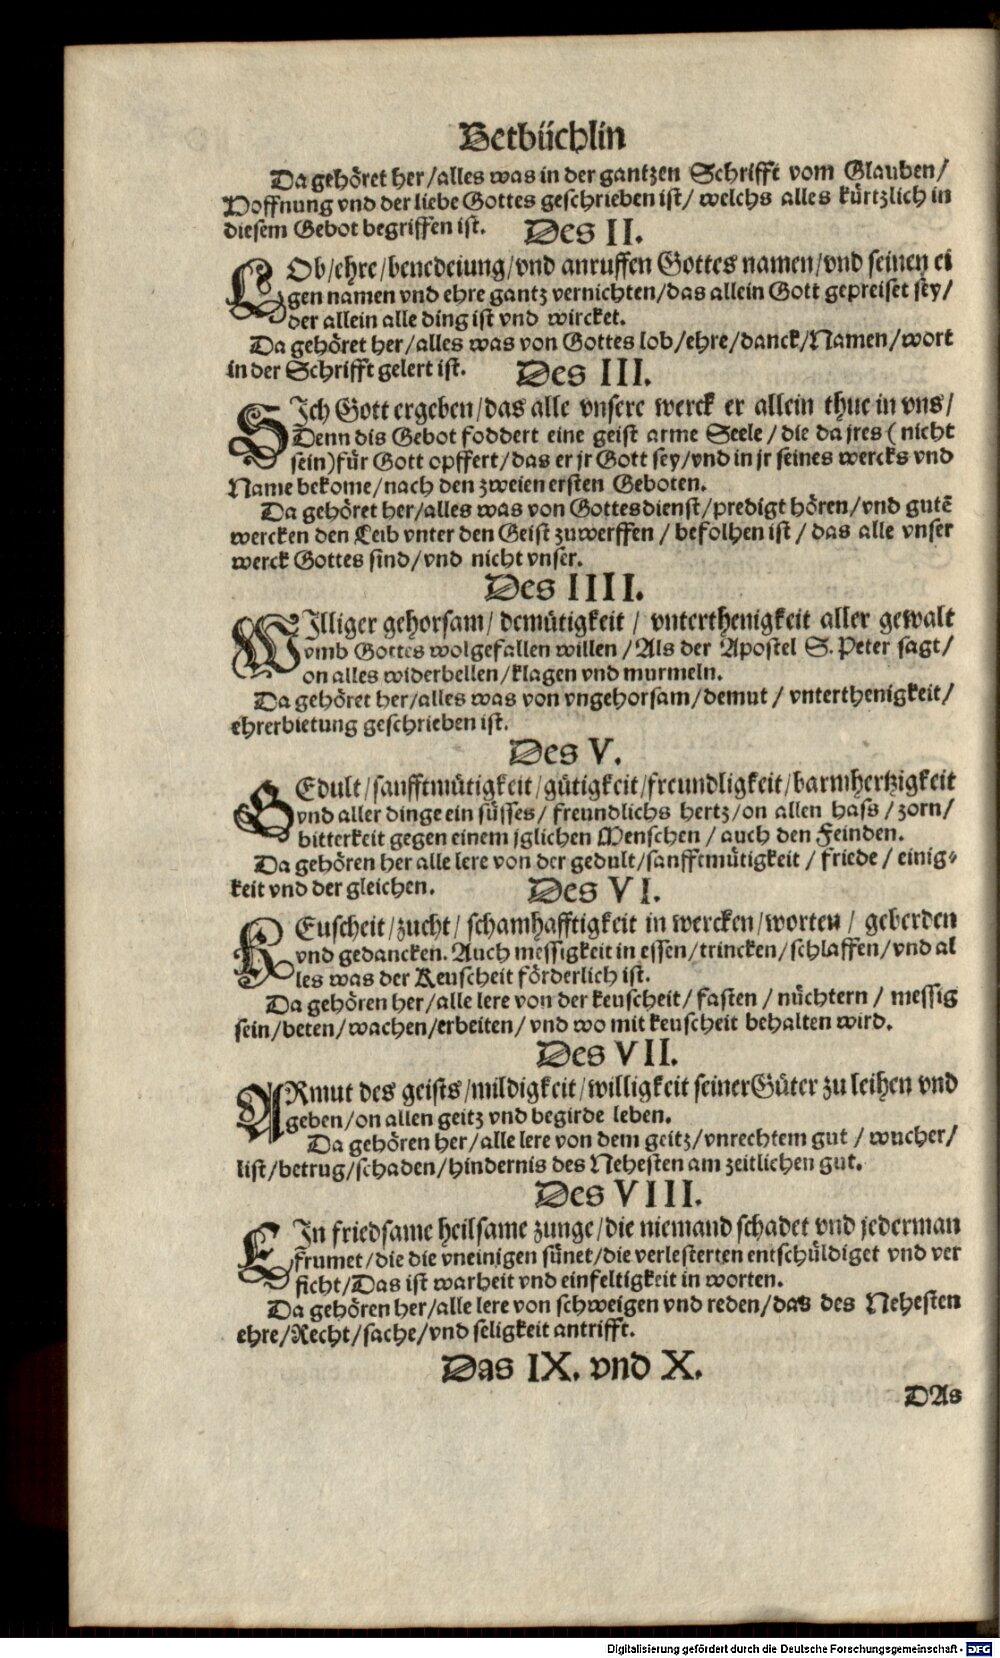 Betbüchlin
Da gehöret her/alles was in der gantzen Schrifft vom Glauben/
Hoffnung vnd der liebe Gottes geschrieben ist/ welchs alles kürtzlich in
diesem Gebot begriffen ist. Des II.
LOb/ehre/benedeiung/vnd anruffen Gottes namen/vnd seinen ei
gen namen vnd ehre gantz vernichten/das allein Gott gepreiset sey/
der allein alle ding ist vnd wircket.
Da gehöret her/alles was von Gottes lob/ehre/danck/Namen/wort
in der Schrifft gelert ist. Des III.
SIch Gott ergeben/das alle vnsere werck er allein thue in vns/
Denn dis Gebot foddert eine geist arme Seele/die da jres (nicht
sein) für Gott opffert/das er jr Gott sey/vnd in jr seines wercks vnd
Name bekome/nach den zweien ersten Geboten.
Da gehöret her/alles was von Gottesdienst/predigt hören/vnd gutē
wercken den Leib vnter den Geist zuwerffen/befolhen ist/das alle vnser
werck Gottes sind/vnd nicht vnser.
Des IIII.
WIlliger gehorsam/demütigkeit/vnterthenigkeit aller gewalt
vmb Gottes wolgefallen willen/Als der Apostel S. Peter sagt/
on alles widerbellen/klagen vnd murmeln.
Da gehöret her/alles was von vngehorsam/demut/vnterthenigkeit/
ehrerbietung geschrieben ist.
Des V.
GEdult/sanfftmütigkeit/gütigkeit/freundligkeit/barmhertzigkeit
vnd aller dinge ein süsses/freundlichs hertz/on allen hass/zorn/
bitterkeit gegen einem jglichen Menschen/auch den Feinden.
Da gehören her alle lere von der gedult/sanfftmütigkeit/friede/einig⸗
keit vnd der gleichen. Des VI.
KEuscheit/zucht/schamhafftigkeit in wercken/worten/geberden
vnd gedancken. Auch messigkeit in essen/trincken/schlaffen/vnd al
les was der Keuscheit förderlich ist.
Da gehören her/alle lere von der keuscheit/fasten/nüchtern/messig
sein/beten/wachen/erbeiten/vnd wo mit keuscheit behalten wird.
Des VII.
ARmut des geists/mildigkeit/willigkeit seiner Güter zu leihen vnd
geben/on allen geitz vnd begirde leben.
Da gehören her/alle lere von dem geitz/vnrechtem gut/wucher/
list/betrug/schaden/hindernis des Nehesten am zeitlichen gut.
Des VIII.
EIn friedsame heilsame zunge/die niemand schadet vnd jederman
frumet/die die vneinigen sünet/die verlesterten entschüldiget vnd ver
ficht/Das ist warheit vnd einfeltigkeit in worten.
Da gehören her/alle lere von schweigen vnd reden/das des Nehesten
ehre/Recht/sache/vnd seligkeit antrifft.
Das IX. vnd X.
DAs
Digitalisierung gefördert durch die Deutsche Forschungsgemeinschaft - DFG